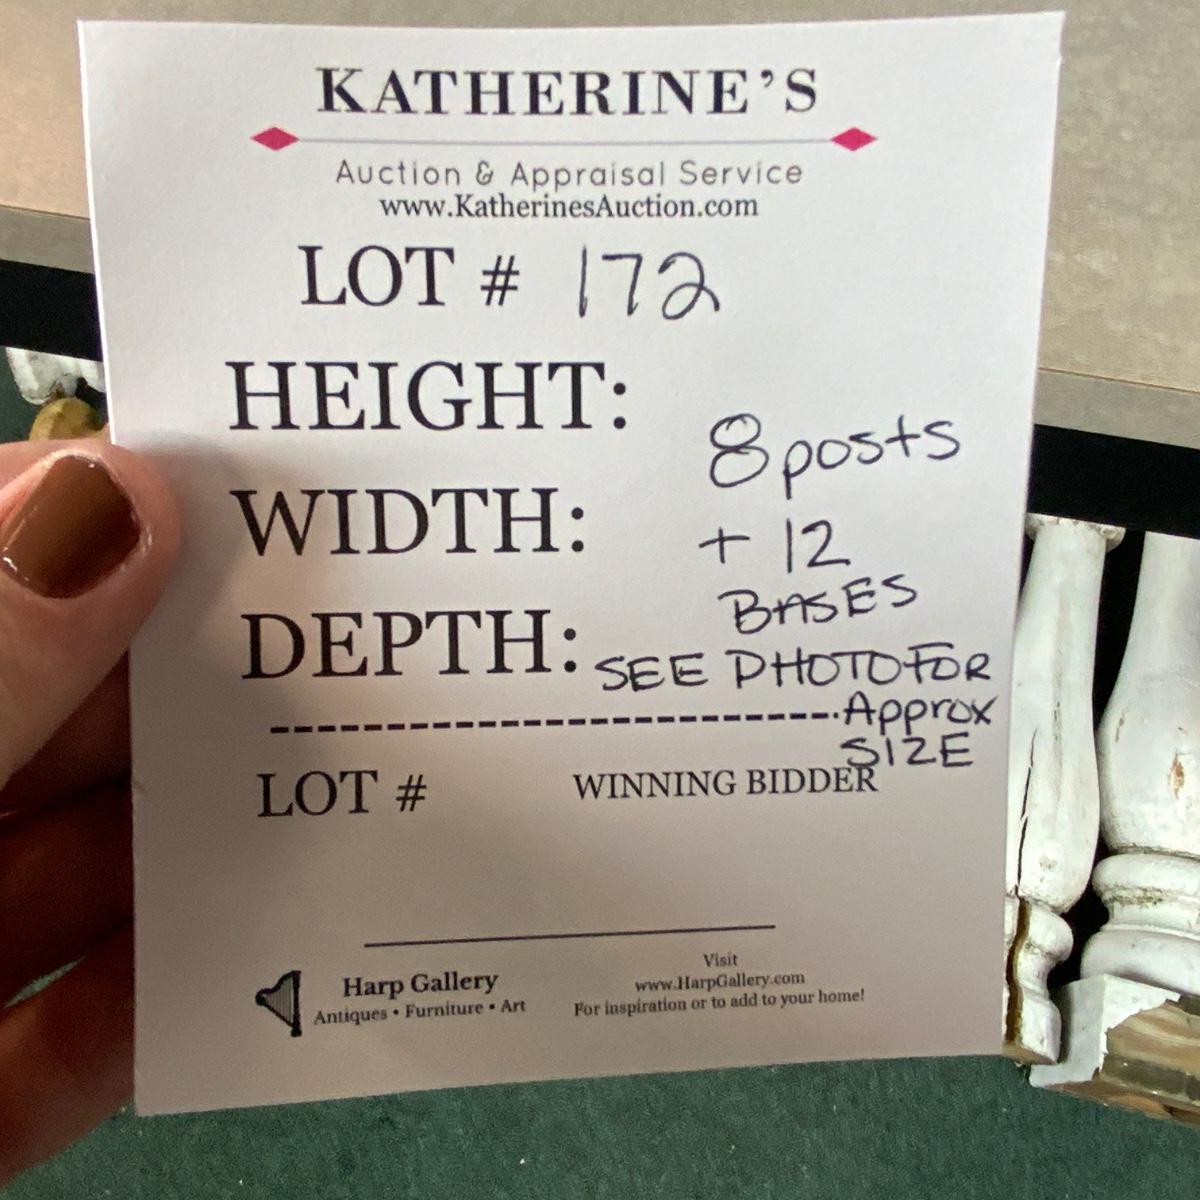 KATHERINE'S
Auction & Appraisal Service
www.KatherinesAuction.com
LOT # 172
HEIGHT:
8 posts
WIDTH:
+ 12
BASES
DEPTH:
SEE PHOTO FOR
Approx
SIZE
LOT #
WINNING BIDDER
Harp Gallery
Antiques • Furniture • Art
Visit
www.HarpGallery.com
For inspiration or to add to your home!